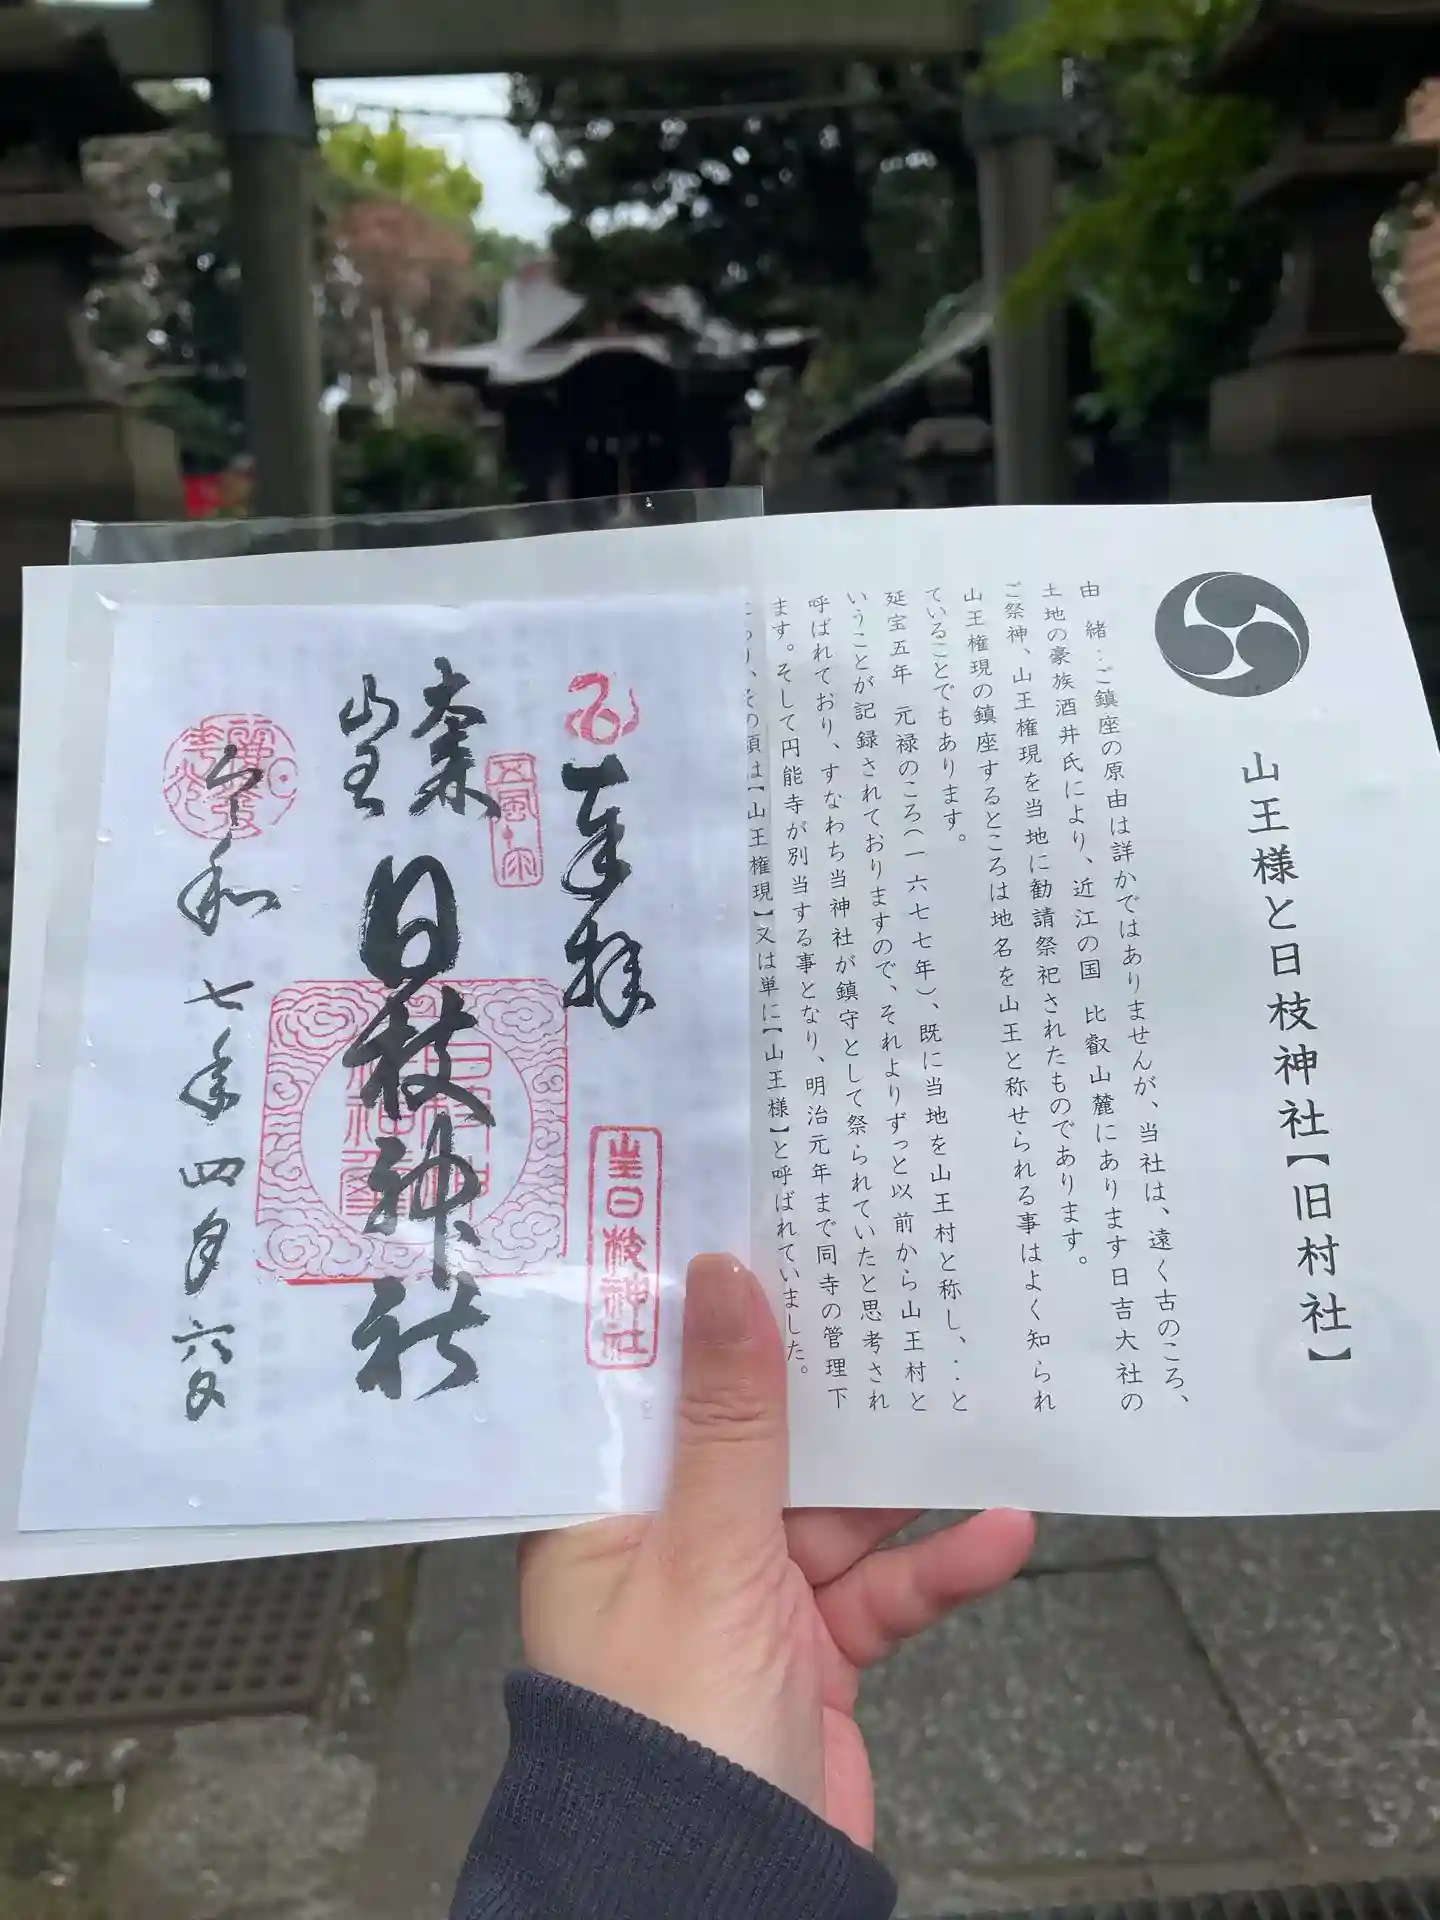 山王様と日枝神社【旧村社】
由 緒‥ご鎮座の原由は詳かではありませんが、当社は、遠く古のころ、
土地の豪族酒井氏により、近江の国 比叡山麓にあります日吉大社の
ご祭神、山王権現を当地に勧請祭祀されたものであります。
山王権現の鎮座するところは地名を山王と称せられる事はよく知られ
ていることでもあります。
延宝五年 元禄のころ(一六七七年)、既に当地を山王村と称し、‥と
いうことが記録されておりますので、それよりずっと以前から山王村と
呼ばれており、すなわち当神社が鎮守として祭られていたと思考され
ます。そして円能寺が別当する事となり、明治元年まで同寺の管理下
その頃は【山王権現】又は単に【山王様】と呼ばれていました。
奉拝
山王日枝神社
五風十雨
山王
日枝神社
令和七年四月六日